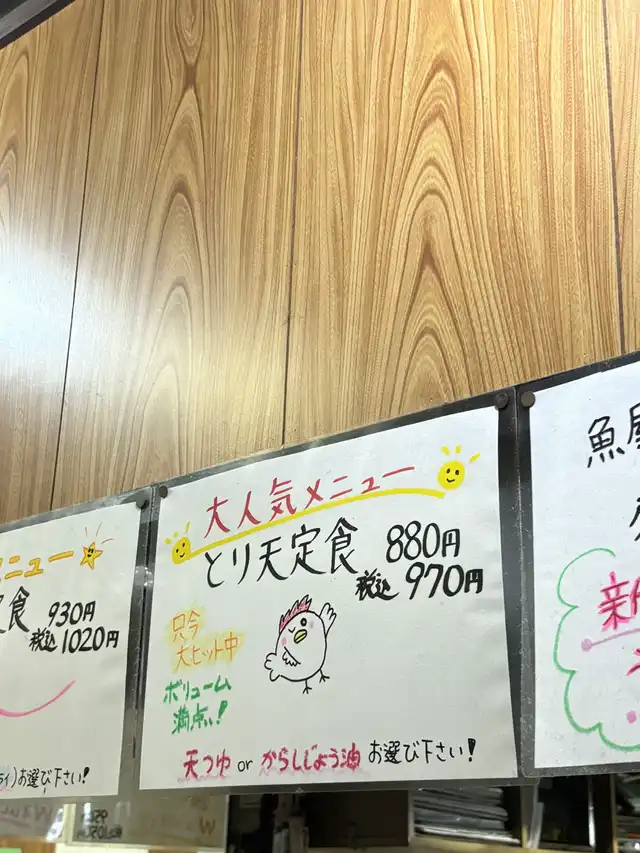 ニュー
定食 930円
税込 1020円
ライ)お選び下さい!
大人気メニュー
とり天定食 880円
税込 970円
只今
大ヒット中
ボリューム
満点!
天つゆ or からしじょう油 お選び下さい!
魚屋
新